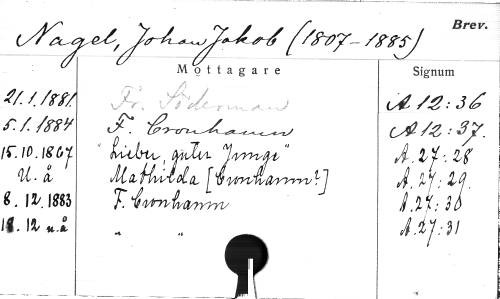 Brev.
Nagel, Johan Jakob (1807-1885)
Mottagare Signum
21.1.1881. Fr. Söderman A 12:36
5.1.1884 F. Cronhamn A 12:37.
15.10.1867 "Lieber, guter Junge" A. 27:28
U. å Mathilda [Cronhamn?] A. 27:29.
8.12.1883 F. Cronhamn A. 27:30
18.12 u.å " " A. 27:31